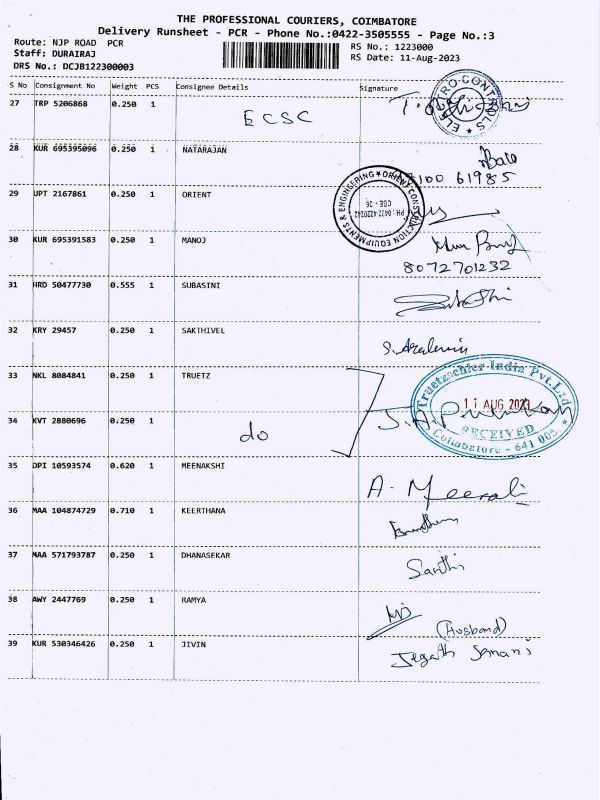 THE PROFESSIONAL COURIERS, COIMBATORE
Delivery Runsheet - PCR - Phone No.:0422-3505555 - Page No.:3
Route: NJP ROAD PCR
Staff: DURAIRAJ
DRS No.: DCJB122300003
RS No.: 1223000
RS Date: 11-Aug-2023
S No Consignment No Weight PCS Consignee Details Signature
27 TRP 5206868 0.250 1 ECSC
ELECTRO CONTROLS
28 KUR 695395096 0.250 1 NATARAJAN
61985
29 UPT 2167861 0.250 1 ORIENT
ORIENT CONSTRUCTION EQUIPMENTS & ENGINEERING
PH: 0422 4220242
CBE - 36
30 KUR 695391583 0.250 1 MANOJ
8072701232
31 HRD 50477730 0.555 1 SUBASINI
32 KRY 29457 0.250 1 SAKTHIVEL
33 NKL 8084841 0.250 1 TRUETZ
Truetzschler India Pvt.Ltd
11 AUG 2023
RECEIVED
Coimbatore - 641 005
34 KVT 2880696 0.250 1 do
35 DPI 10593574 0.620 1 MEENAKSHI
36 MAA 104874729 0.710 1 KEERTHANA
37 MAA 571793787 0.250 1 DHANASEKAR
Santhi
38 AWY 2447769 0.250 1 RAMYA
(Husband)
39 KUR 530346426 0.250 1 JIVIN